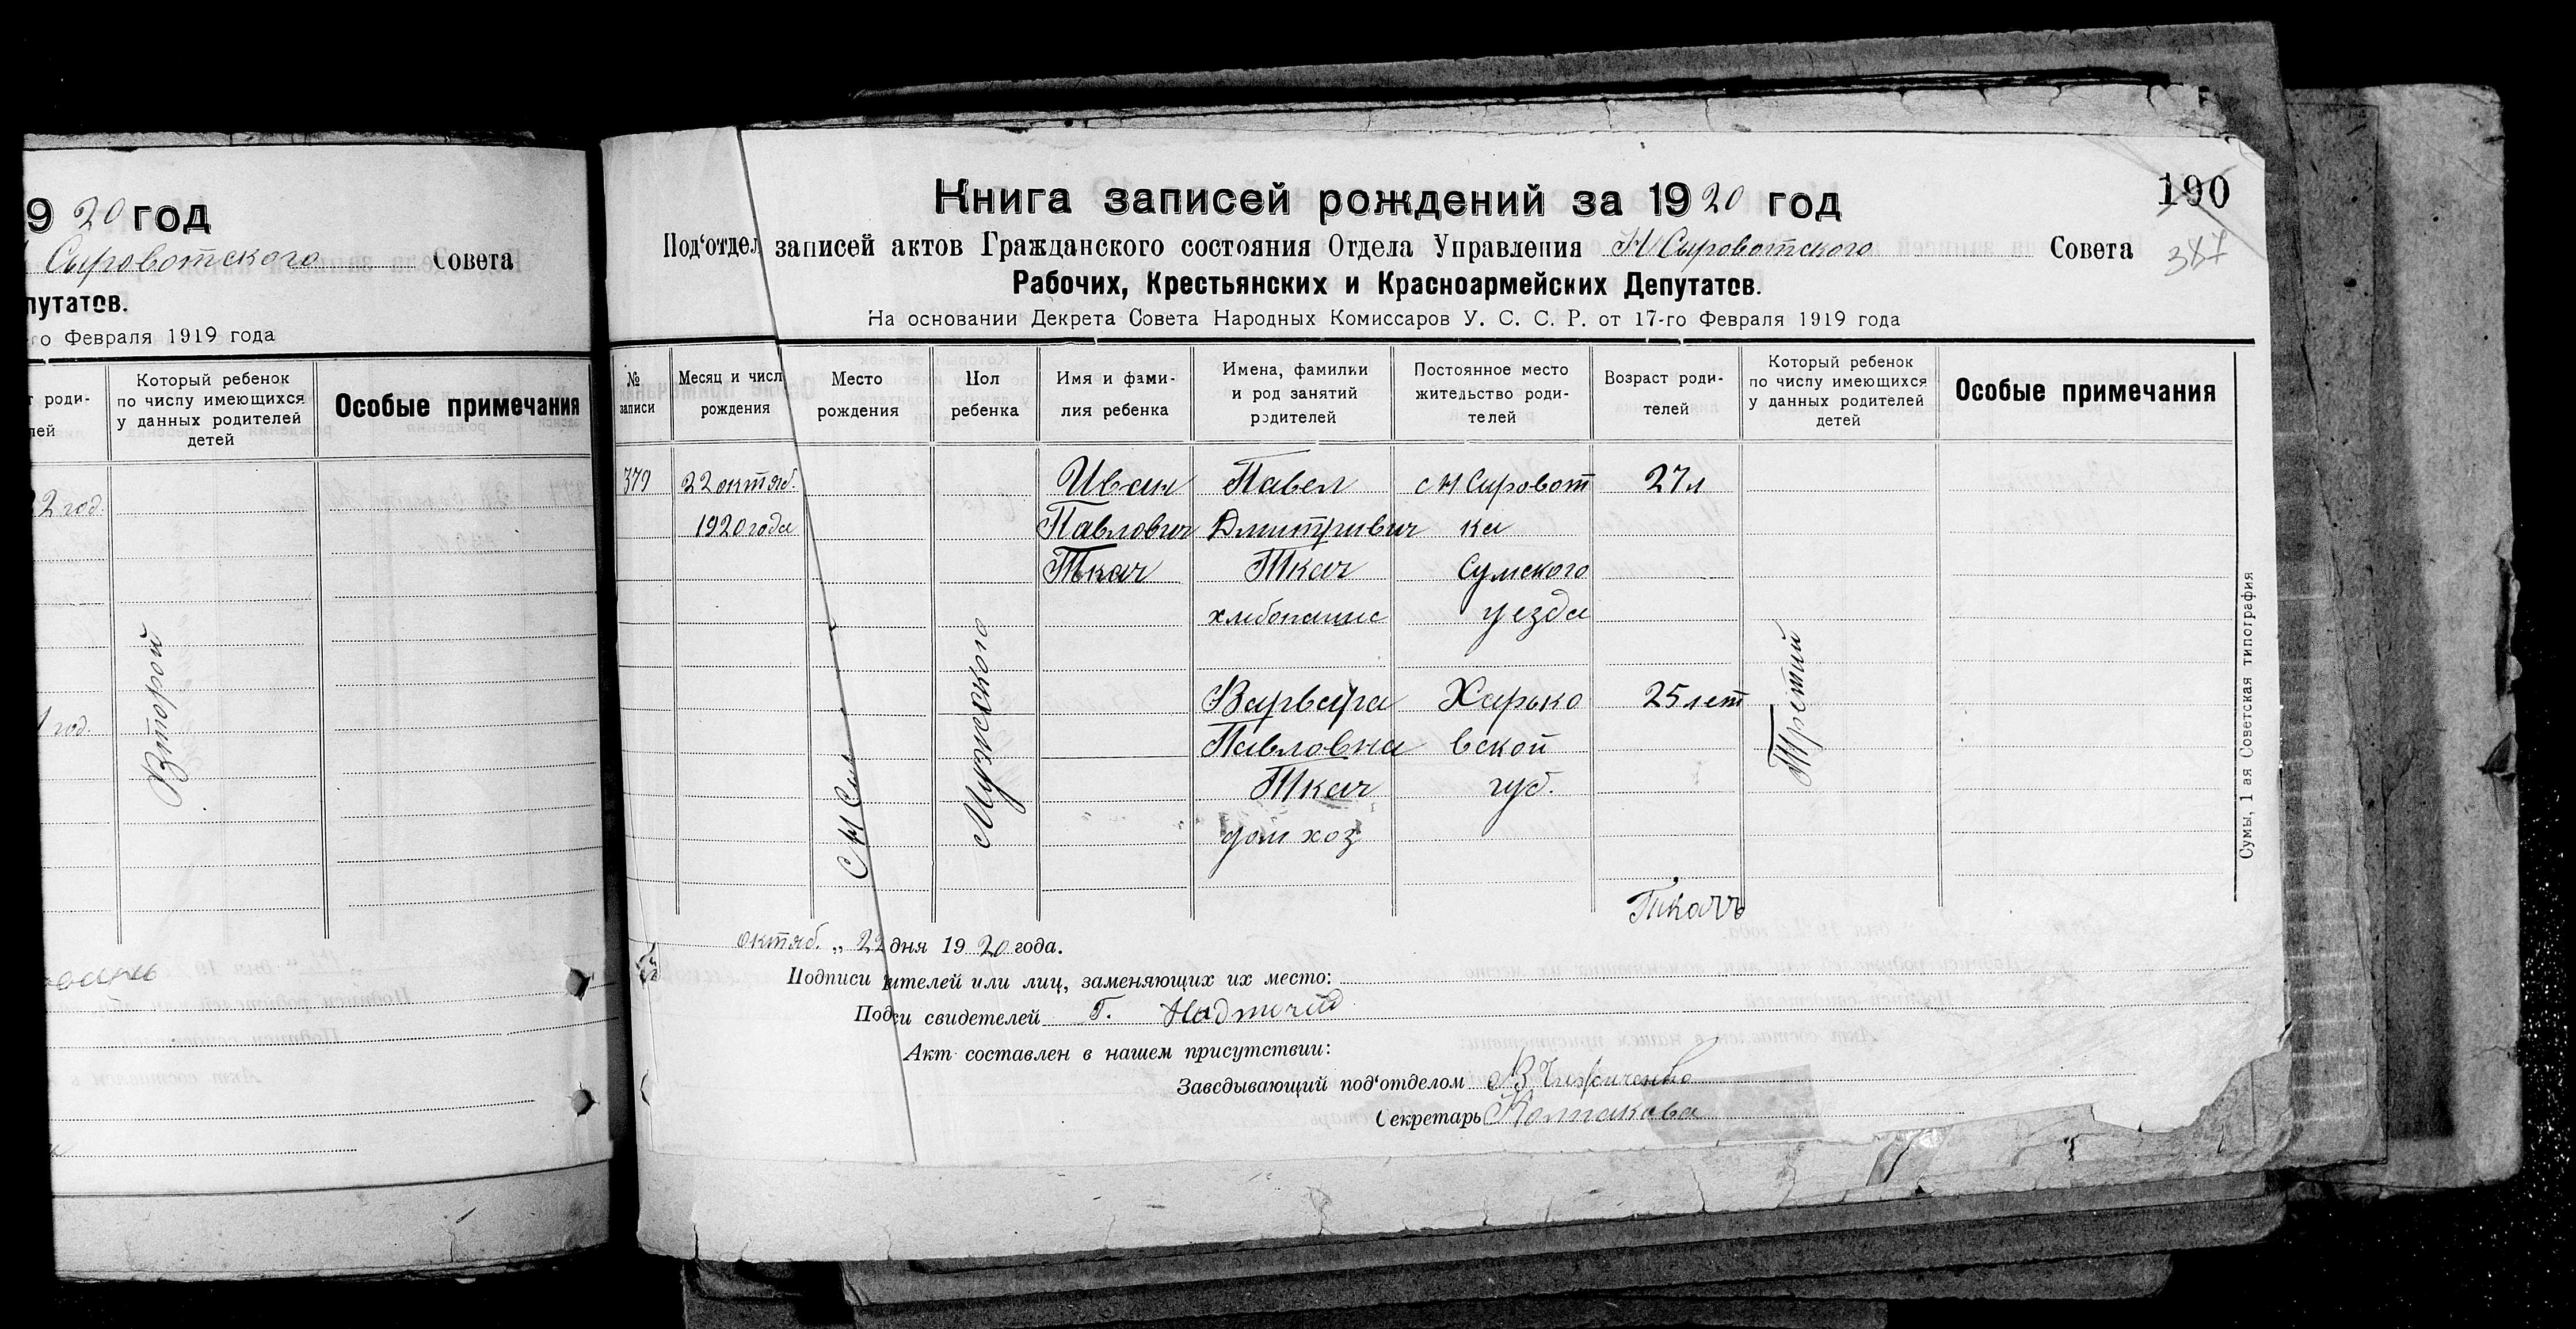 9 20 год
Сыровотского Совета
путатов.
го Февраля 1919 года
т роди-
лей
Который ребенок
по числу имеющихся
у данных родителей
детей
Особые примечания
2 год.
1 год.
Второй
Книга записей рождений за 1920 год
190
387
Под'отдел записей актов Гражданского состояния Отдела Управления Н Сыровотского Совета
Рабочих, Крестьянских и Красноармейских Депутатов.
На основании Декрета Совета Народных Комиссаров У. С. С. Р. от 17-го Февраля 1919 года
№
записи
Месяц и числ
рождения
Место
рождения
Пол
ребенка
Имя и фами-
лия ребенка
Имена, фамилии
и род занятий
родителей
Постоянное место
жительство роди-
телей
Возраст роди-
телей
Который ребенок
по числу имеющихся
у данных родителей
детей
Особые примечания
379 22 октяб. Иван Павел с Н Сыровот 27 л
1920 года Павлович Дмитривич ка
Ткач Ткач Сумского
хлебопашс уезда
Варвара Харько 25 лет
Павловна вской
Ткач губ.
дом хоз
С Н Сыл
Мужского
Третий
Ткачъ
октяб. „ 22 дня 1920 года.
Подписи ителей или лиц, заменяющих их место:
Подси свидетелей Г. Надточий
Акт составлен в нашем присутствии:
Заведывающий под'отделом В
Секретарь Колтакова
Сумы, 1 ая Советская типография